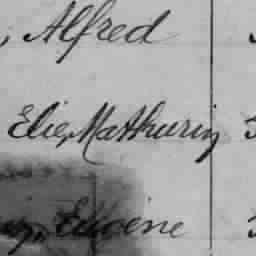 , Alfred
Elie, Mathurin 3
Eugène